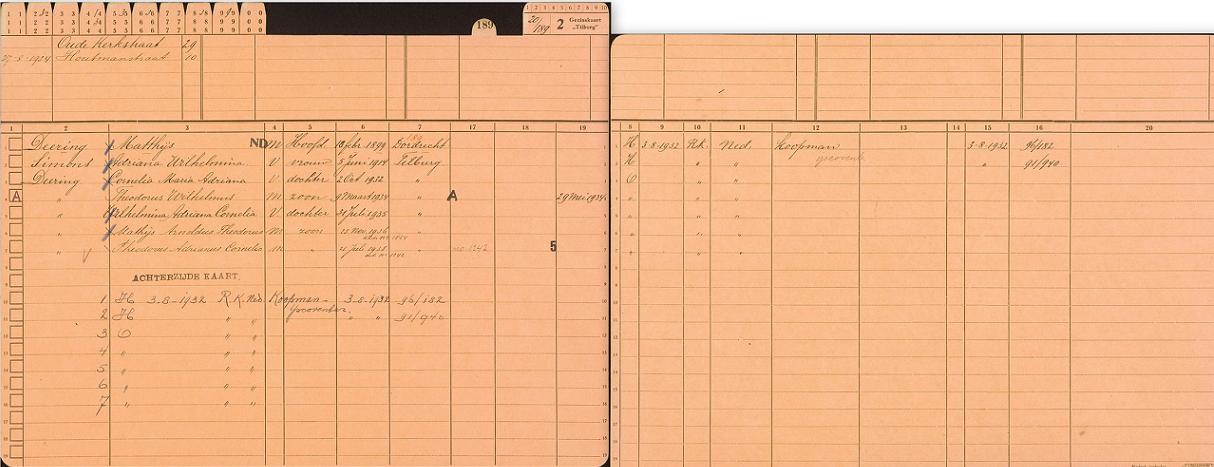 189
20/189 2 Gezinskaart „Tilburg"
Oude Kerkstraat 29
27-8-1934 Houtmanstraat 10
1 2 3 4 5 6 7 17 18 19
Deering Matthijs ND M Hoofd 1899 Dordrecht
Simons Adriana Wilhelmina V vrouw 5 Juni 1914 Tilburg
Deering Cornelia Maria Adriana V dochter 2 Oct 1932 "
A " Theodorus Wilhelmus M zoon 9 Maart 1934 " A 29 Mei 1934
" Wilhelmina Adriana Cornelia V dochter 31 Juli 1935 "
" Mathijs Arnoldus Theodorus M zoon 15 Nov. 1936 "
" Theodorus Adrianus Cornelis M " 21 Juli 1938 " 5
ACHTERZIJDE KAART.
1 H 3-8-1932 R.K. Ned. Koopman- 3-8-1932 96/182
2 H " " " " 91/940
3 O " "
4 " " "
5 " " "
6 " " "
7 " " "
8 9 10 11 12 13 14 15 16 20
H 3-8-1932 R.k. Ned. Koopman 3-8-1932 96/182
H " " " 91/940
O " "
" " "
" " "
" " "
" " "